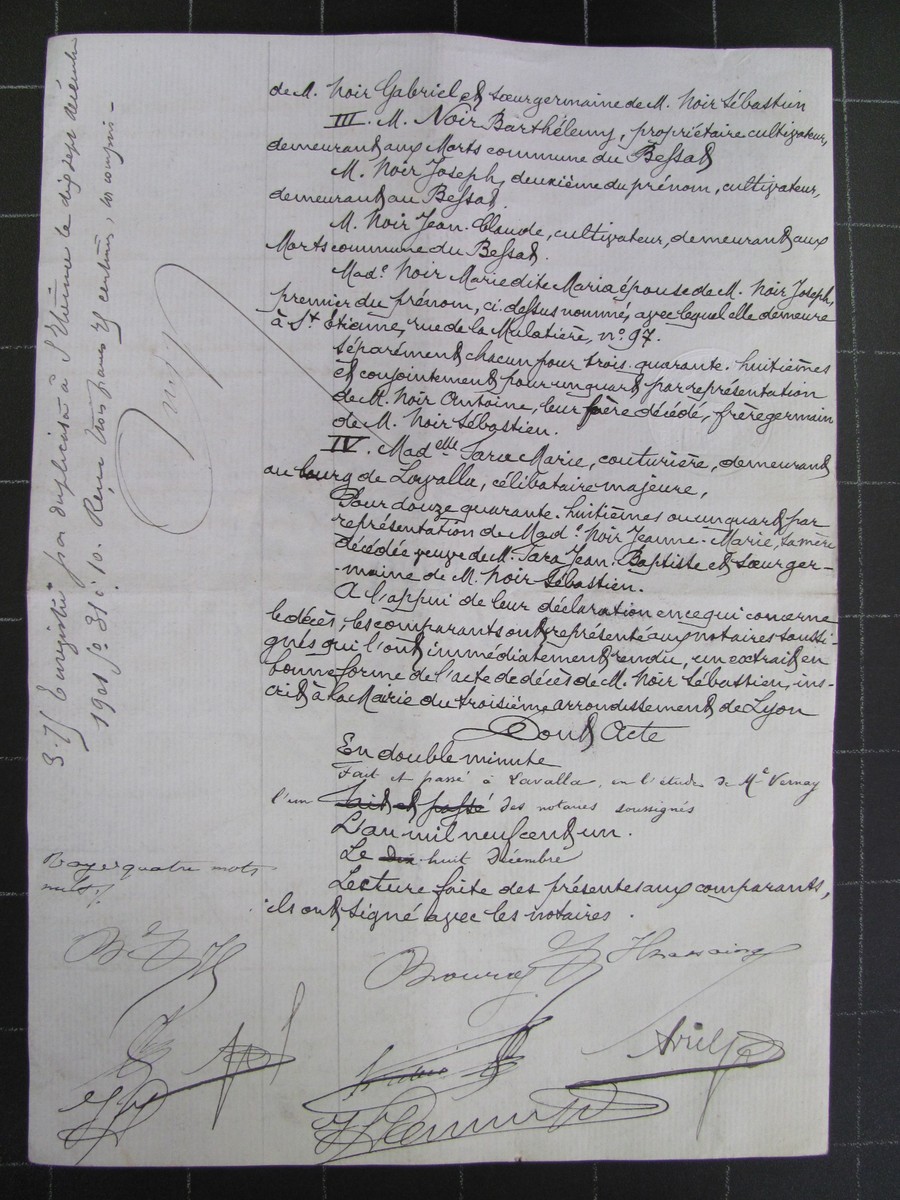 de M. Noir Gabriel et sœur germaine de M. Noir Sébastien
III. M. Noir Barthélemy, propriétaire cultivateur,
demeurant aux Morts commune du Bessat
M. Noir Joseph, deuxième du prénom, cultivateur,
demeurant au Bessat.
M. Noir Jean-Claude, cultivateur, demeurant aux
Morts commune du Bessat.
Made. Noir Marie dite Maria épouse de M. Noir Joseph,
premier du prénom, ci-dessus nommé, avec lequel elle demeure
à St Etienne, rue de la Mulatière, n° 97.
séparément chacun pour trois-quarante-huitièmes
et conjointement pour un quart par représentation
de M. Noir Antoine, leur frère décédé, frère germain
de M. Noir Sébastien.
IV. Madelle Tara Marie, couturière, demeurant
au bourg de Lavalla, célibataire majeure,
Pour douze quarante-huitièmes ou un quart par
représentation de Made. Noir Jeanne-Marie, sa mère
décédée veuve de M. Tara Jean-Baptiste et sœur ger-
-maine de M. Noir Sébastien.
A l'appui de leur déclaration en ce qui concerne
le décès, les comparants ont représenté aux notaires soussi-
gnés qui l'ont immédiatement rendu, un extrait en
bonne forme de l'acte de décès de M. Noir Sébastien, ins-
crit à la Mairie du troisième arrondissement de Lyon
Dont Acte
En double minute
Fait et passé à Lavalla, en l'étude de Me Vernay
l'un fait et passé des notaires soussignés
L'an mil neuf cent un.
Le dix huit Décembre
Lecture faite des présentes aux comparants,
ils ont signé avec les notaires.
Rayé quatre mots
nuls
Enregistré par duplicata à St Etienne le dix sept décembre
1901 fo 31 c 10. Reçu trois francs centimes, compris -